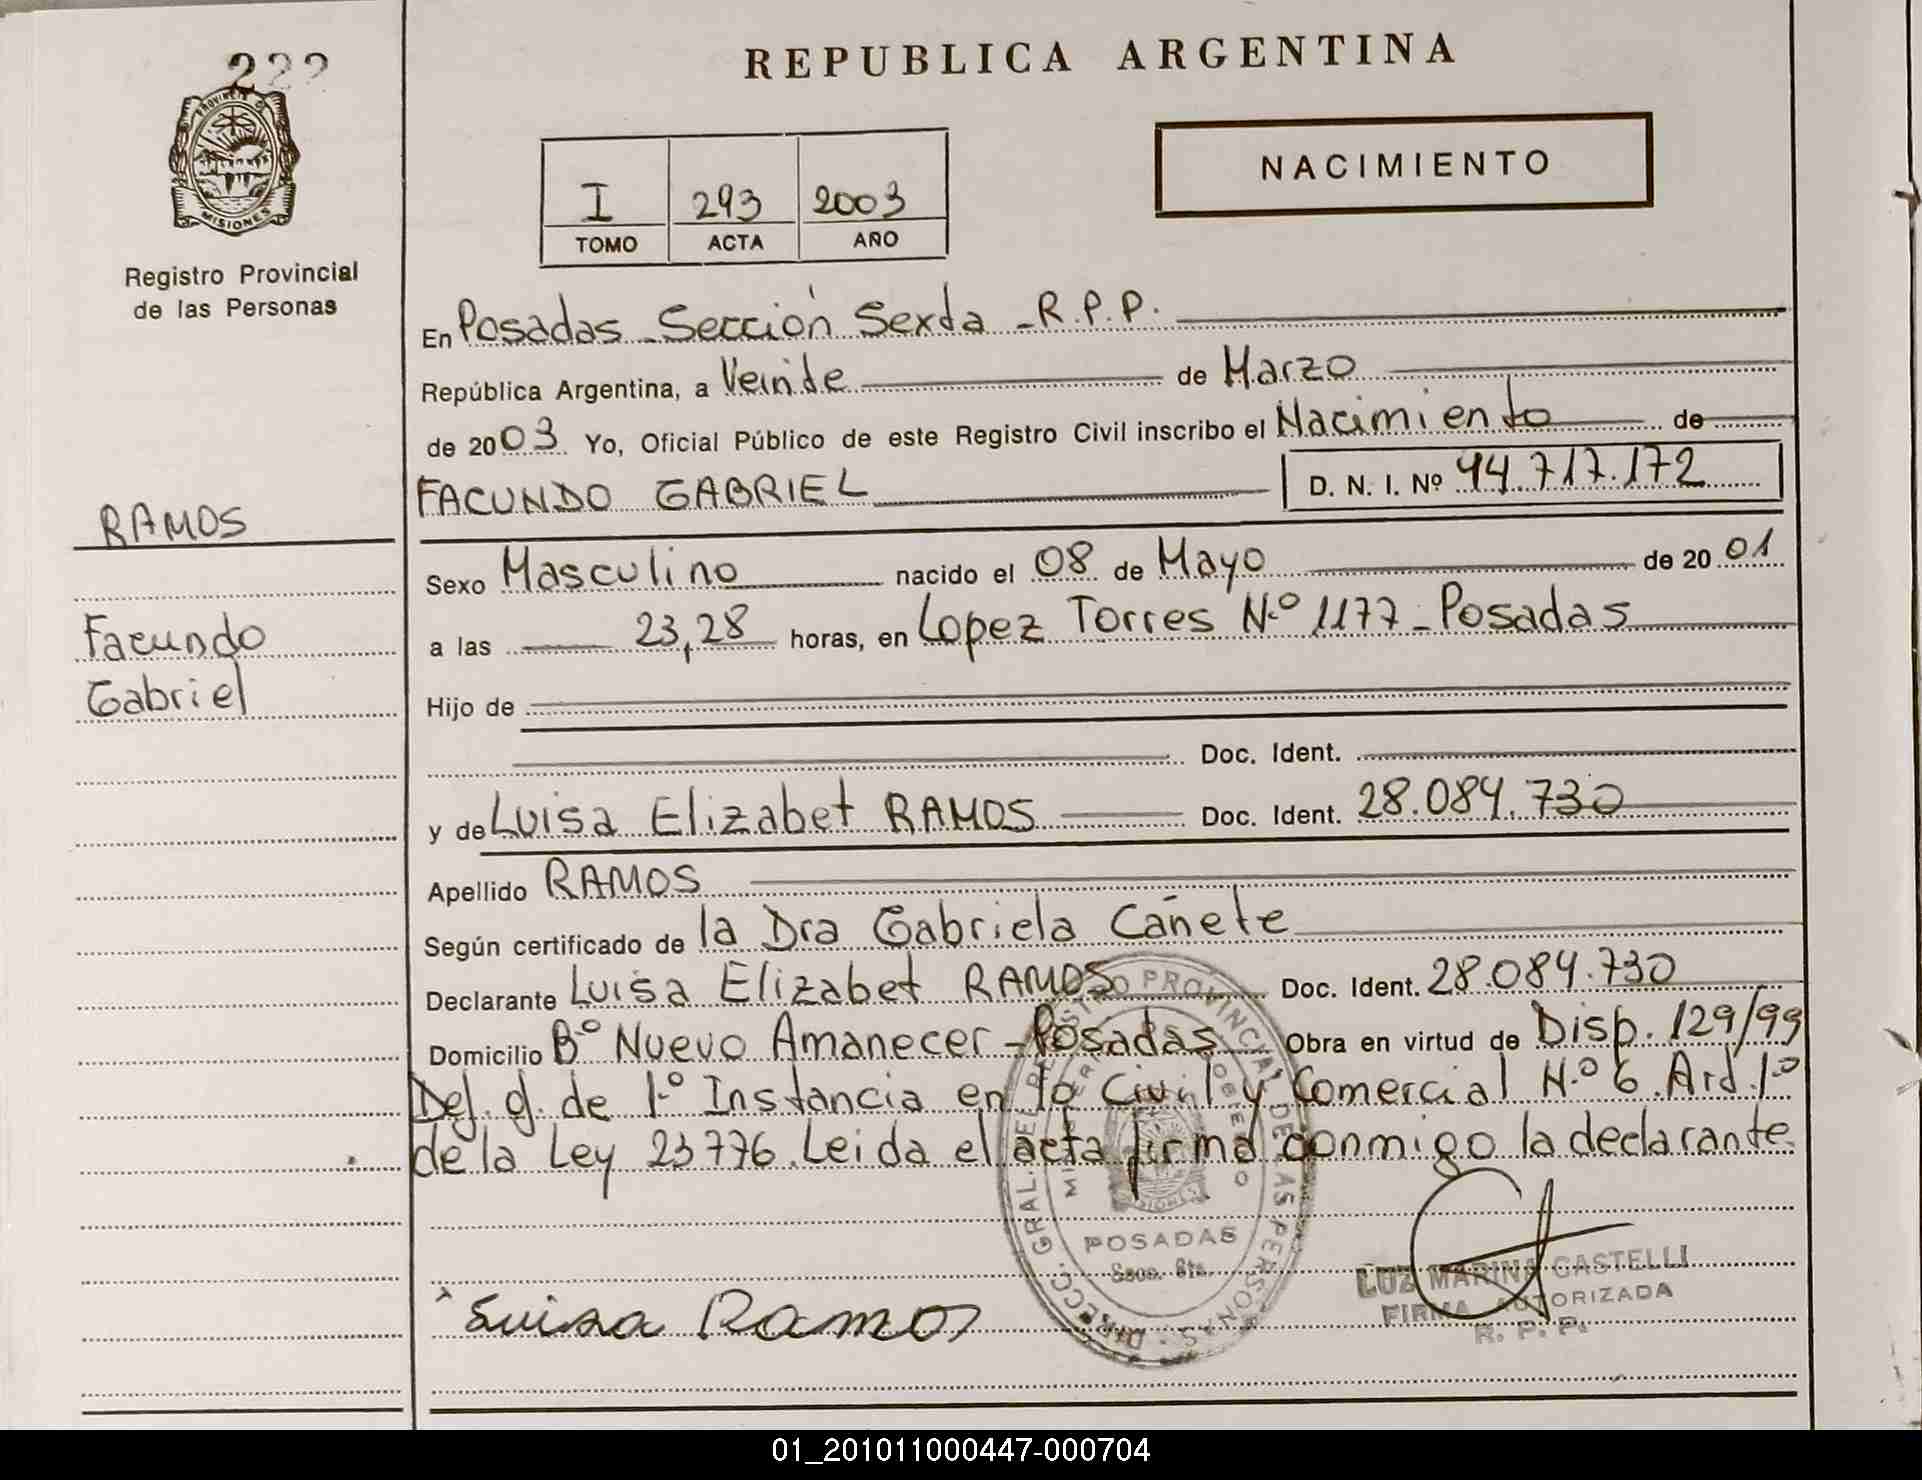 222
PROVINCIA DE
MISIONES
Registro Provincial
de las Personas
RAMOS
Facundo
Gabriel
REPUBLICA ARGENTINA
I 293 2003
TOMO ACTA AÑO
NACIMIENTO
En Posadas - Sección Sexta - R.P.P.
República Argentina, a Veinte de Marzo
de 2003 Yo, Oficial Público de este Registro Civil inscribo el Nacimiento de
FACUNDO GABRIEL D. N. I. Nº 44.717.172
Sexo Masculino nacido el 08 de Mayo de 2001
a las 23,28 horas, en Lopez Torres N.º 1177 - Posadas
Hijo de
Doc. Ident.
y de Luisa Elizabet RAMOS Doc. Ident. 28.084.730
Apellido RAMOS
Según certificado de la Dra Gabriela Cañete
Declarante Luisa Elizabet RAMOS Doc. Ident. 28.084.730
Domicilio Bº Nuevo Amanecer - Posadas Obra en virtud de Disp. 129/99
de 1.º Instancia en lo Civil y Comercial N.º 6 Art. 1º
de la Ley 23776. Leida el acta firma conmigo la declarante.
DIRECC. GRAL. DEL REGISTRO PROVINCIAL DE LAS PERSONAS
POSADAS
Secc. 6ta.
Luisa Ramos
LUZ MARINA CASTELLI
FIRMA AUTORIZADA
R. P. P.
01_201011000447-000704